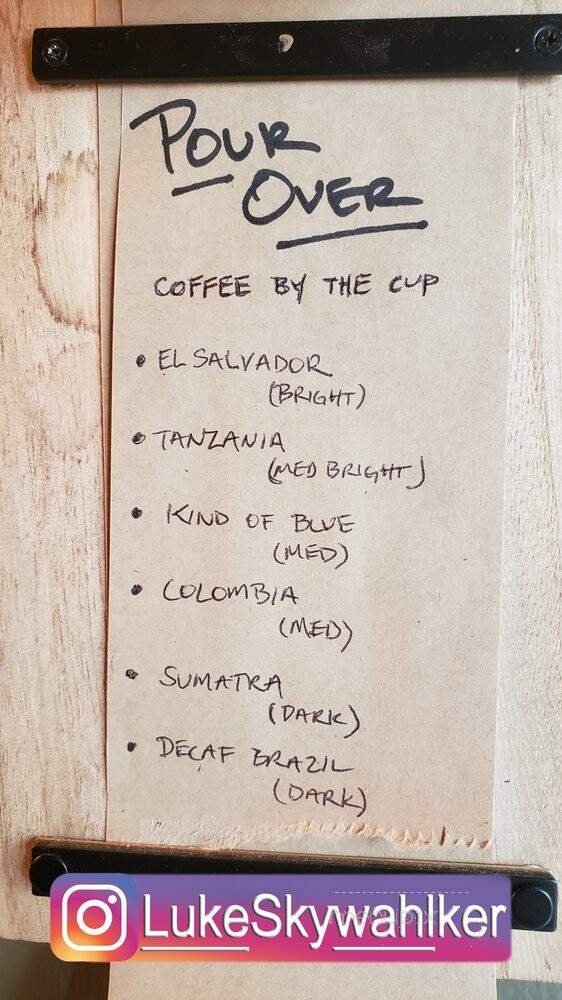 POUR
OVER
COFFEE BY THE CUP
• EL SALVADOR
(BRIGHT)
• TANZANIA
(MED BRIGHT)
• KIND OF BLUE
(MED)
• COLOMBIA
(MED)
• SUMATRA
(DARK)
• DECAF BRAZIL
(DARK)
LukeSkywahlker